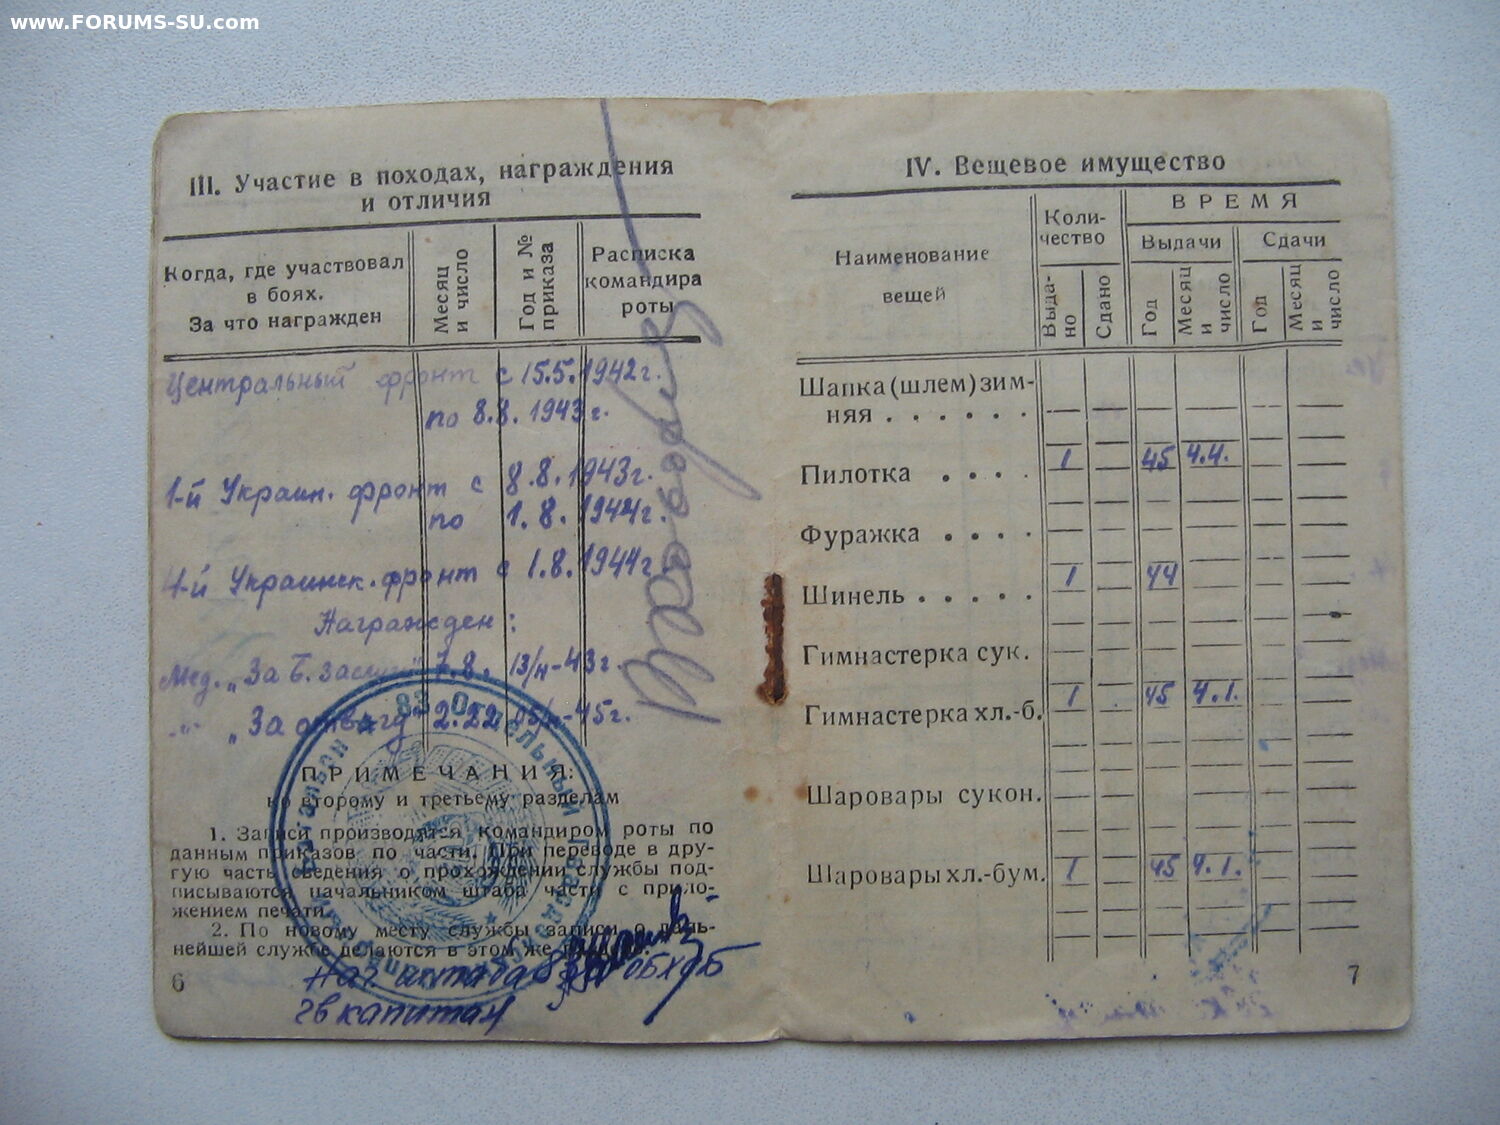 www.FORUMS-SU.com
III. Участие в походах, награждения
и отличия
Когда, где участвовал
в боях.
За что награжден
Месяц
и число
Год и №
приказа
Расписка
командира
роты
Центральный фронт с 15.5.1942г.
по 8.8.1943г.
1-й Украин. фронт с 8.8.1943г.
по 1.8.1944г.
4-й Украинск. фронт с 1.8.1944г.
Награжден:
Мед. „За б. заслуги" 7.8. 13/н-43г.
„За отвагу" 2.22 -45г.
ПРИМЕЧАНИЯ:
ко второму и третьему разделам
1. Записи производятся командиром роты по
данным приказов по части. При переводе в дру-
гую часть сведения о прохождении службы под-
писываются начальником штаба части с прило-
жением печати.
2. По новому месту службы записи о даль-
нейшей службе делаются в этом же
83 Отдельный
батальон
Нач. штаба 83 ОБХЗ
гв капитан
6
IV. Вещевое имущество
Наименование
вещей
Коли-
чество
ВРЕМЯ
Выдачи
Сдачи
Выда-
но
Сдано
Год
Месяц
и
число
Год
Месяц
и
число
Шапка (шлем) зим-
няя . . . . . .
Пилотка . . . . 1 45 4.4.
Фуражка . . . .
Шинель . . . . . 1 44
Гимнастерка сук.
Гимнастерка хл.-б. 1 45 4.1.
Шаровары сукон.
Шаровары хл.-бум. 1 45 4.1.
7